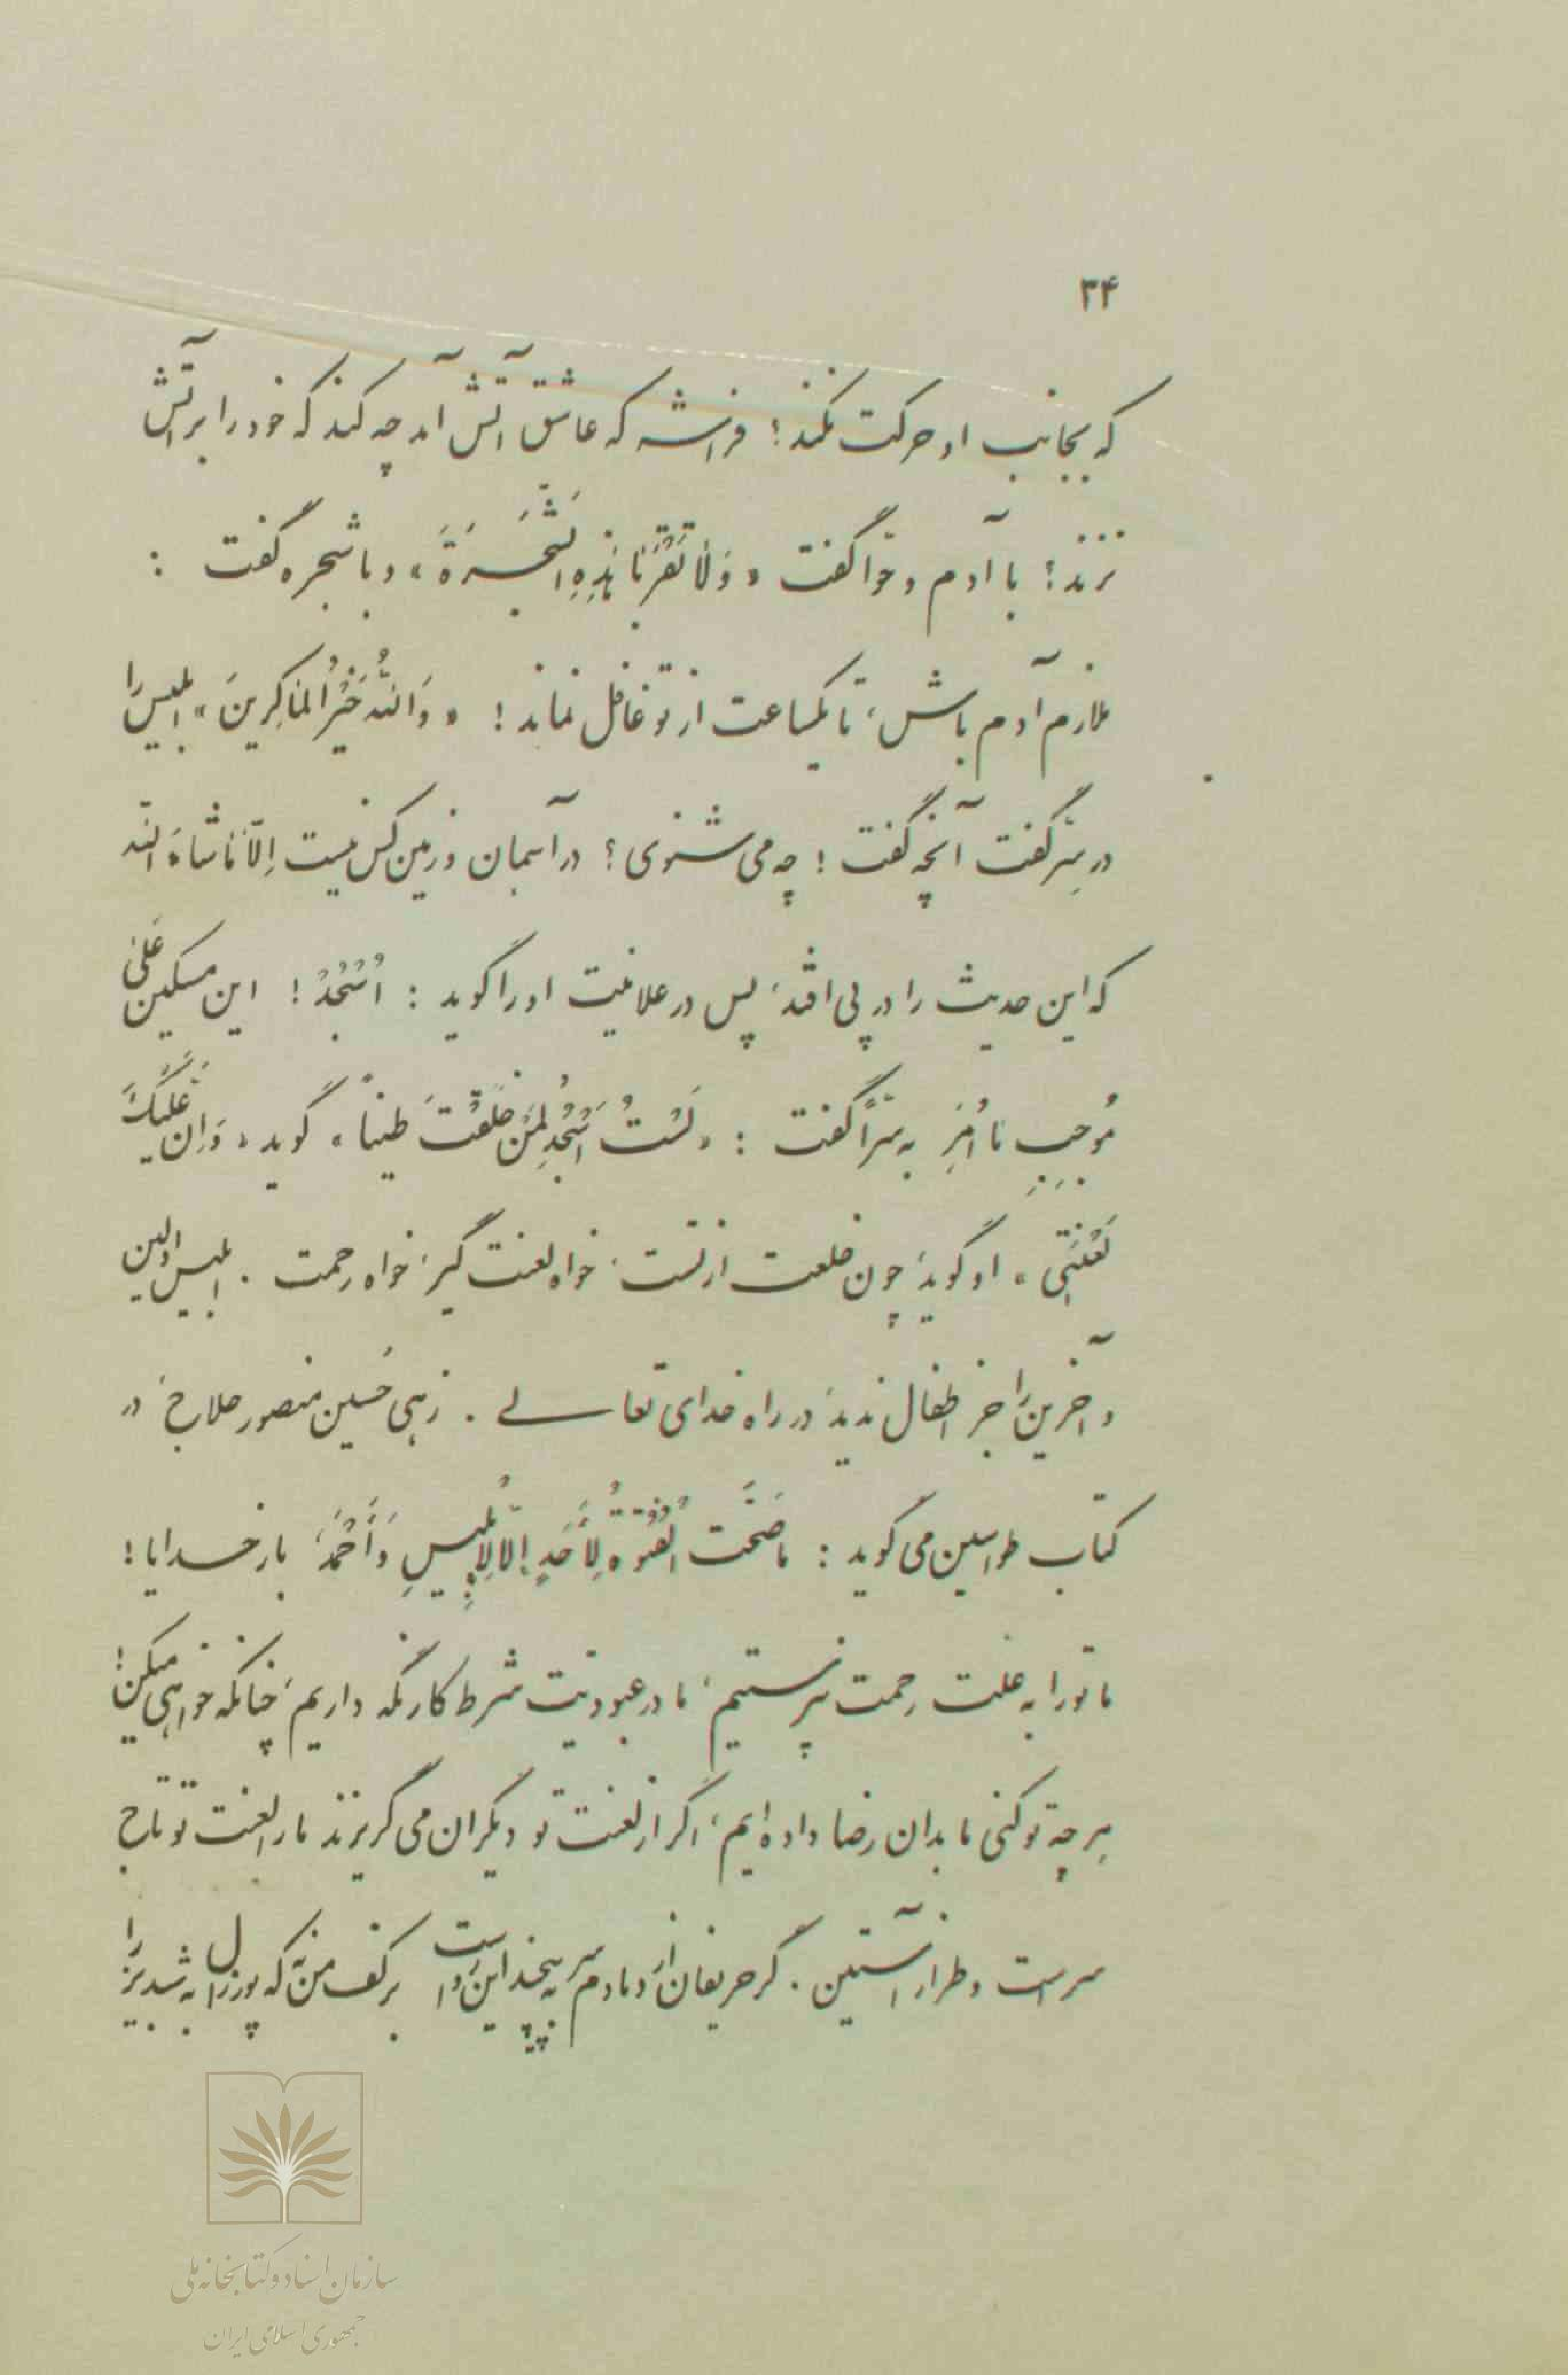 ۳۴
که بجانب او حرکت نکند؛ فراشه که عاشق آتش آمد چه کند که خود را بر آتش
نزند؛ با آدم و حوّا گفت «وَلا تَقْرَبٰا هٰذِهِ الشَّجَرَةَ»، و با شجره گفت :
ملازم آدم باش، تا یکساعت از تو غافل نماند! «وَاللهُ خَیْرُ المٰاکِرینَ» ابلیس را
در سِرّ گفت آنچه گفت؛ چه می شنوی؟ در آسمان و زمین کس نیست اِلّا مٰا شاءَ الله
که این حدیث را در پی افتد، پس در علانیت او را گوید : اُسْجُدْ! این مسکین عَلیٰ
مُوجِبِ مٰا اُمِرَ به سِرّاً گفت : «لَسْتُ اَسْجُدُ لِمَنْ خَلَقْتَ طیناً» گوید «وَاِنَّ عَلَیْکَ
لَعْنَتی» او گوید، چون خلعت از تست، خواه لعنت گیر، خواه رحمت . ابلیس اولین
و آخرین را جز اطفال ندید، در راه خدای تعالی . زهی حُسین منصور حلاج، در
کتاب طواسین می گوید : مٰا صَحَّت الْفُتُوَّةُ لِأَحَدٍ اِلّا لِاِبْلیسِ وَ أَحْمَدَ، بار خدایا!
ما تو را به علت رحمت نپرستیم، ما در عبودیت شرط کار نگه داریم، چنانکه خواهی میکن!
هر چه تو کنی ما بدان رضا داده ایم، اگر از لعنت تو دیگران می گریزند ما را لعنت تو تاج
سر است و طراز آستین . گر حریفان از دمادم سر بپیچند این رواست بر کف من نه که پور زال به شبدیز را
سازمان اسناد و کتابخانه ملی
جمهوری اسلامی ایران